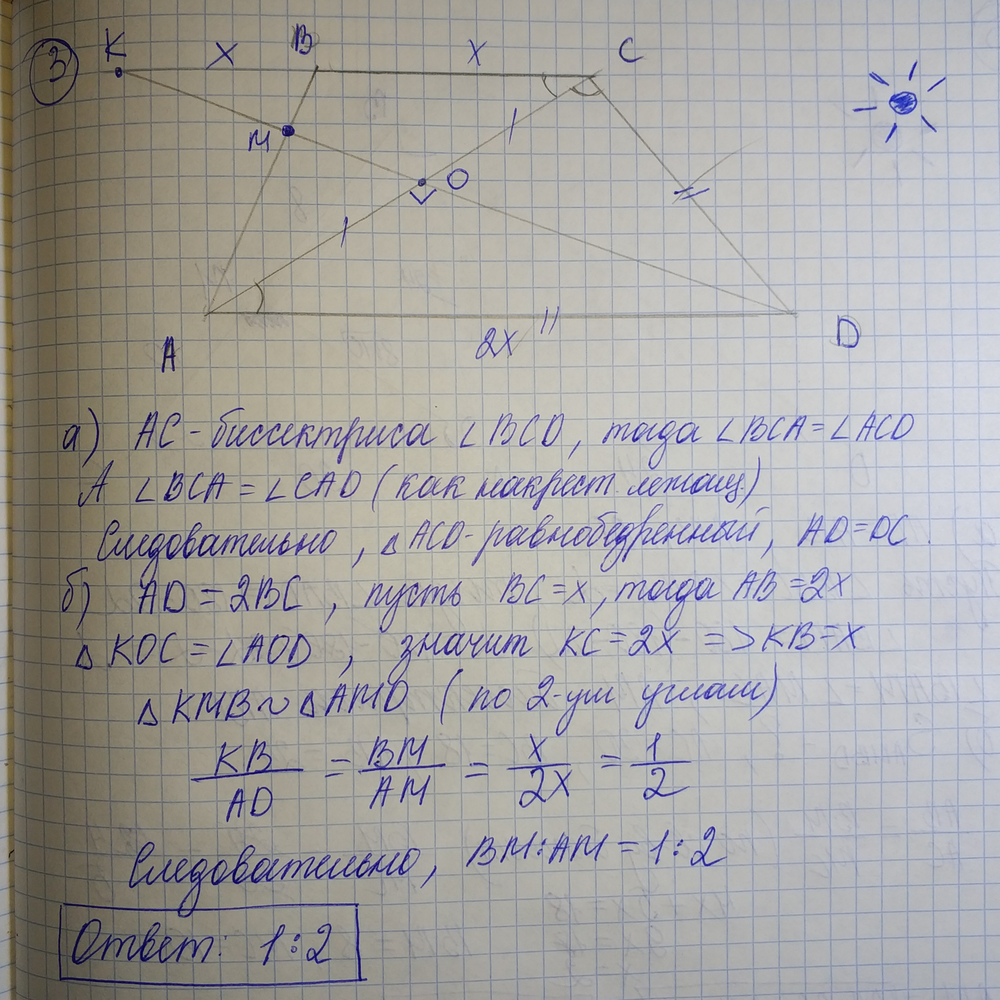 3
K x B x C
M
O
A 2x D
а) AC - биссектриса ∠BCD, тогда ∠BCA = ∠ACD
А ∠BCA = ∠CAD (как накрест. лежащ)
Следовательно, △ACD - равнобедренный, AD = DC.
б) AD = 2BC, пусть BC = x, тогда AB = 2x
△KOC = ∠AOD, значит KC = 2x => KB = x
△KMB ~ △AMD (по 2-ум углам)
KB/AD = BM/AM = x/2x = 1/2
Следовательно, BM:AM = 1:2
Ответ: 1:2